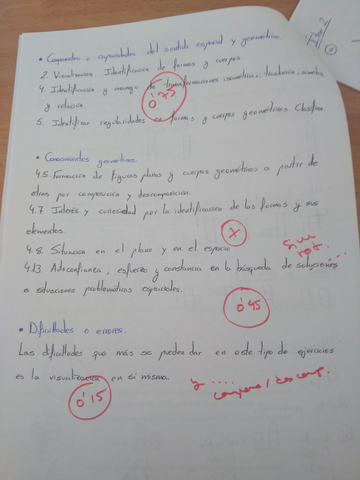 • Componentes o capacidades del sentido espacial y geométrico.
2. Visualización. Identificación de formas y cuerpos.
4. Identificación y manejo de transformaciones isométricas: traslación, simetría
y rotación.
0'75
5. Identificar regularidades en formas y cuerpos geométricos. Clasificar.
• Conocimientos geométricos.
4.5. Formación de figuras planas y cuerpos geométricos a partir de
otras por composición y descomposición.
4.7. Interés y curiosidad por la identificación de las formas y sus
elementos.
4.8. Situación en el plano y en el espacio
4.13. Autoconfianza, esfuerzo y constancia en la búsqueda de soluciones
a situaciones problemáticas espaciales.
0'45
• Dificultades o errores.
Las dificultades que más se pueden dar en este tipo de ejercicios
es la visualización en sí misma.
0'15